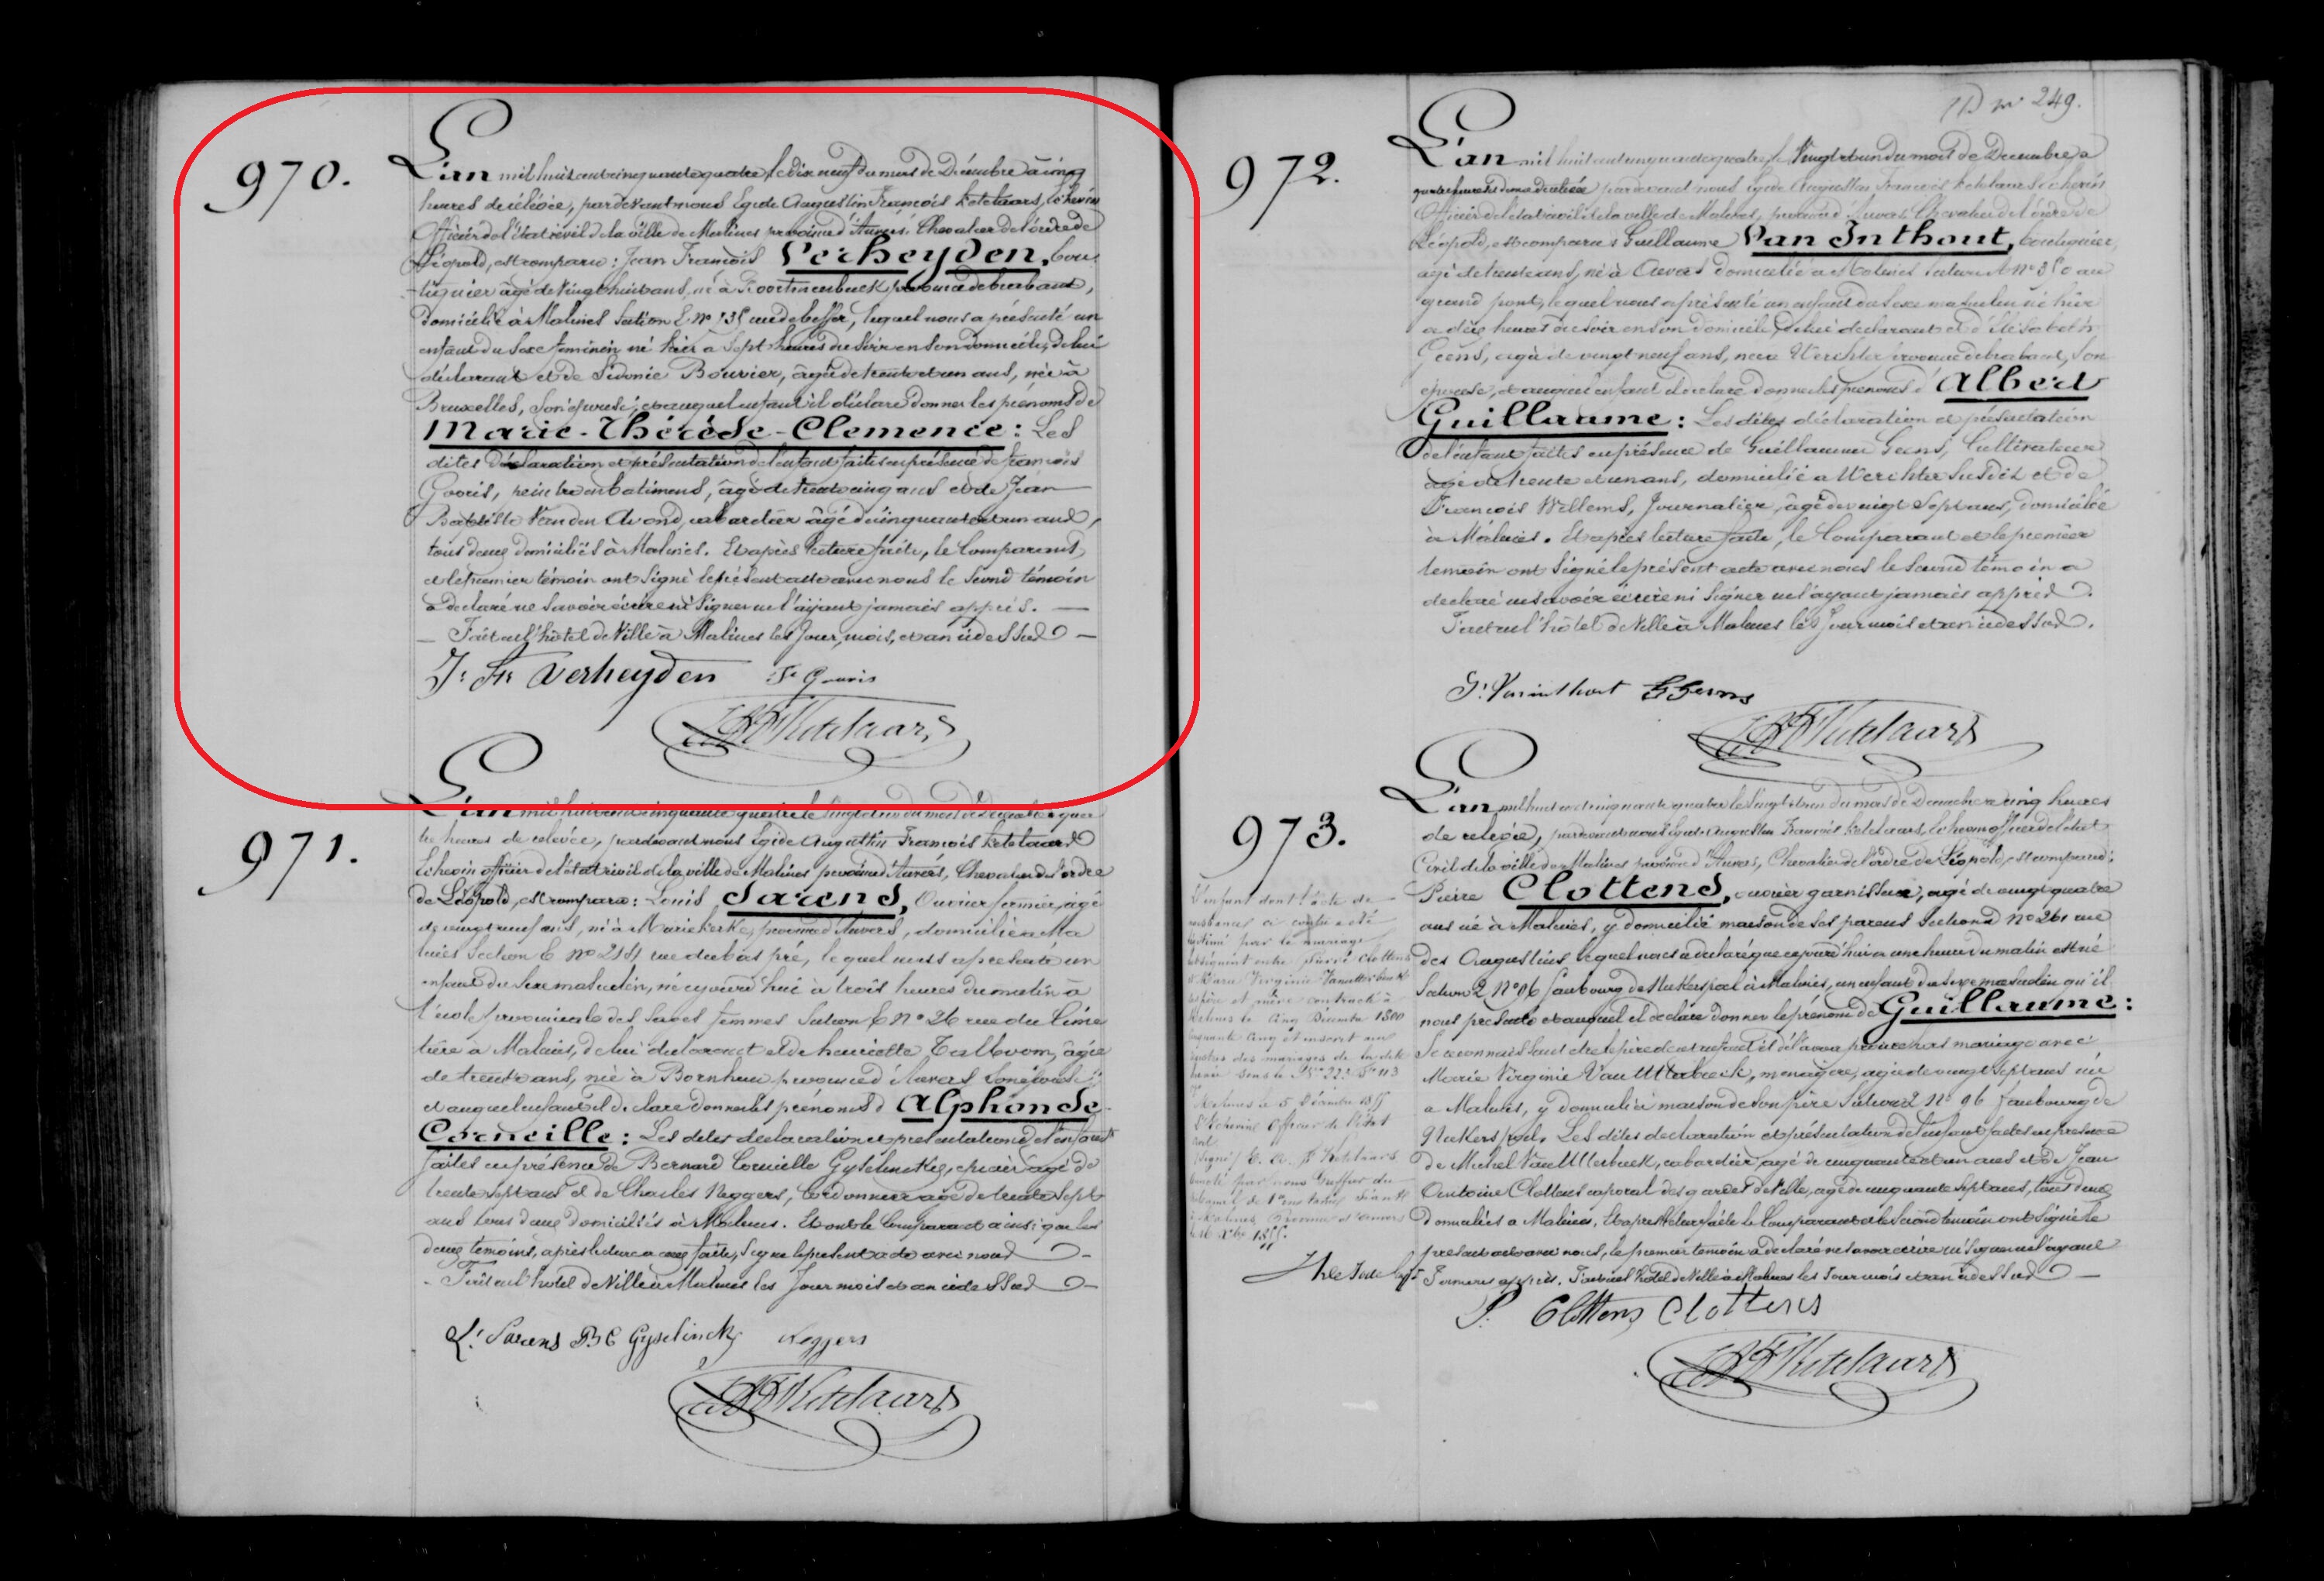 970.
L'an mil huit cent cinquante quatre, le dix neuf du mois de Décembre à cinq
heures de relevée, pardevant nous Egide Augustin François Ketelaars, Echevin
Officier de l'état civil de la ville de Malines province d'Anvers, Chevalier de l'ordre de
Léopold, est comparu: Jean François Verheyden, bou-
tiquier âgé de vingt huit ans, né à province de brabant,
domicilié à Malines Section E No 135 rue de beffer, lequel nous a présenté un
enfant du sexe feminin né hier à Sept heures du soir en son domicile, de lui
déclarant et de Sidonie Bouvier, âgée de trente et un ans, née à
Bruxelles, son épouse, et auquel enfant il déclare donner les prénoms de
Marie-Thérèse-Clemence: Les
dites déclaration et présentation de l'enfant faites en présence de françois
Govris, peintre en batiments, âgé de trente cinq ans et de Jean
Baptiste Van den Avond, cabaretier âgé de cinquante et un ans,
tous deux domiciliés à Malines. Et après lecture faite, le Comparant
et le premier témoin ont signé le présent acte avec nous le second témoin
a declaré ne savoir écrire ni signer ne l'ayant jamais appris. —
— Fait en l'hôtel de Ville à Malines les jour, mois, et an ci dessus —
J. Fr Verheyden F Govris
Ketelaars
971.
L'an mil huit cent cinquante quatre le vingt et un du mois de décembre à qua-
tre heures de relevée, pardevant nous Egide Augustin François Ketelaars
Echevin officier de l'état civil de la ville de Malines province d'Anvers, Chevalier de l'ordre
de Léopold, est comparu: Louis Sarens, Ouvrier fermier, âgé
de vingt neuf ans, né à Mariekerke, province d'Anvers, domicilié à Ma
lines Section E No rue du bas pré, lequel nous a présenté un
enfant du sexe masculin, né ce jourd'hui à trois heures du matin à
l'école provinciale des sages femmes Section E No 26 rue du Cime
tière à Malines, de lui declarant et de henriette Talboom, âgée
de trente ans, née à Bornhem province d'Anvers son épouse
et auquel enfant il declare donner les prénoms d'Alphonse
Corneille: Les dites declaration et présentation de l'enfant
faites en présence de Bernard Corneille Gyselinckx, âgé de
trente sept ans et de Charles Neggers, Cordonnier âgé de trente sept
ans tous deux domiciliés à Malines. Et ont le Comparant ainsi que les
deux témoins, après lecture à eux faite, signé le présent acte avec nous —
- Fait en l'hôtel de Ville à Malines les jour mois et an ci dessus —
L. Sarens B C Gyselinckx Neggers
Ketelaars
249.
972.
L'an mil huit cent cinquante quatre le Vingt et un du mois de Decembre à
quatre heures et demie de relevée pardevant nous Egide Augustin François Ketelaars echevin
Officier de l'état civil de la ville de Malines, province d'Anvers Chevalier de l'ordre de
Léopold, est comparu: Guillaume Van Inthout, boutiquier,
âgé de trente ans, né à Anvers domicilié à Malines Section A No 350 au
grand pont, lequel nous a présenté un enfant du sexe masculin né hier
à dix heures du soir en son domicile, de lui declarant et d'Elisabeth
Geens, âgée de vingt neuf ans, née à Werchter province de brabant, son
épouse, et auquel enfant il declare donner les prenoms d'Albert
Guillaume: Les dites déclaration et présentation
de l'enfant faites en présence de Guillaume Geens, Cultivateur
âgé de trente et un ans, domicilié à Werchter susdit et de
François Willems, Journalier, âgé de vingt sept ans, domicilié
à Malines. Et après lecture faite, le Comparant et le premier
temoin ont signé le présent acte avec nous le second témoin a
declaré ne savoir écrire ni signer ne l'ayant jamais appris.
Fait en l'hôtel de Ville à Malines les jour mois et an ci dessus.
G. Vaninthout G Geens
Ketelaars
973.
L'an mil huit cent cinquante quatre le vingt et un du mois de Decembre à cinq heures
de relevée, pardevant nous Egide Augustin François Ketelaars, Echevin officier de l'état
Civil de la ville de Malines province d'Anvers, Chevalier de l'ordre de Léopold, est comparu:
Pierre Clottens, ouvrier garnisseur, âgé de vingt quatre
ans né à Malines, y domicilié maison de ses parens Section D No 261 rue
des Augustins lequel nous a declaré que ce jourd'hui à une heure du matin est né
Section 2 No 96 faubourg de Neckerspoel à Malines, un enfant du sexe masculin qu'il
nous présente et auquel il declare donner le prénom de Guillaume:
Se reconnaissant être le père de cet enfant et de l'avoir procréé hors mariage avec
Marie Virginie Van Utterbeeck, menagère, âgée de vingt sept ans née
à Malines, y domiciliée maison de son père Section 2 No 96 faubourg de
Neckerspoel. Les dites declaration et présentation de l'enfant faites en présence
de Michel Van Utterbeeck, cabaretier, âgé de cinquante et un ans et de Jean
Antoine Clottens caporal des gardes de Ville, âgé de cinquante sept ans, tous deux
domiciliés à Malines. Et après lecture faite le Comparant et le second temoin ont signé le
présent acte avec nous, le premier temoin a declaré ne savoir écrire ni signer ne l'ayant
jamais appris. Fait en l'hôtel de Ville à Malines les jour mois et an ci dessus —
P. Clottens Clottens
Ketelaars
L'enfant dont l'acte de
naissance ci contre a été
légitimé par le mariage
subséquent entre pierre Clottens
et Marie Virginie Vanutterbeeck
ses père et mère contracté à
Malines le cinq Décembre 1800
cinquante cinq et inscrit au
registre des mariages de la dite
Malines le 5 Décembre 1855
L'Echevin Officier de l'état
civil
(signé) E. A. F. Ketelaars